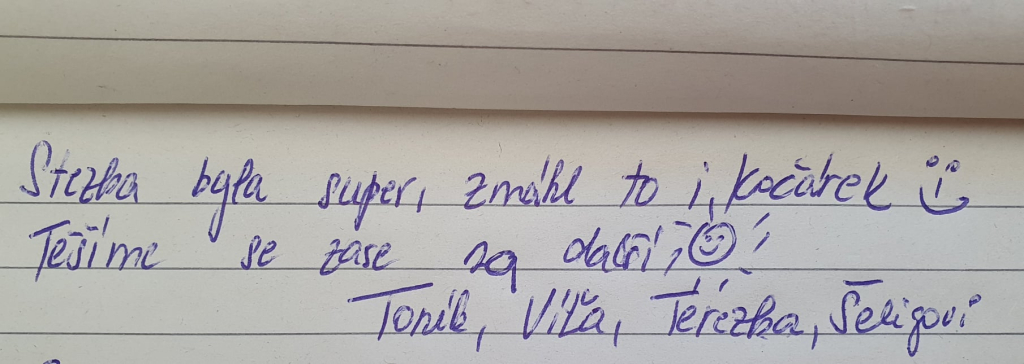 Stezka byla super, zmákl to i kočárek
Těšíme se zase na další!
Toník, Víťa, Terezka, Šeligovi